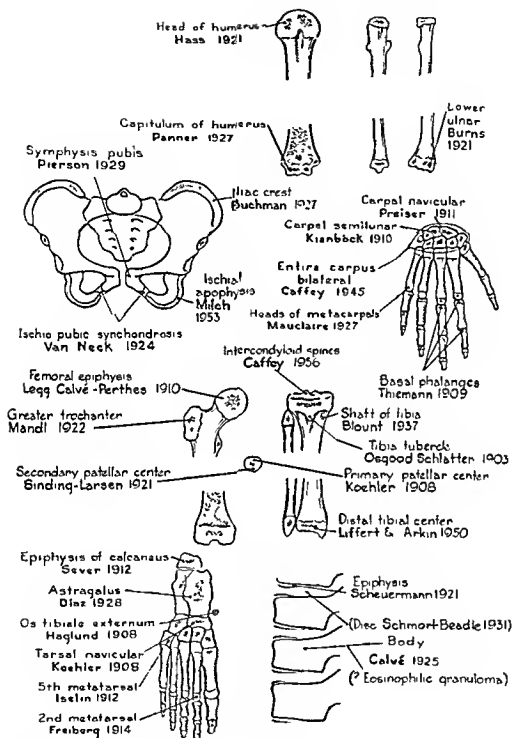 Head of humerus
Hass 1921
Capitulum of humerus
Panner 1927
Lower
ulnar
Burns
1921
Symphysis pubis
Pierson 1929
Iliac crest
Buchman 1927
Ischial
apophysis
Milch
1953
Ischio pubic synchondrosis
Van Neck 1924
Carpal navicular
Preiser 1911
Carpel semilunar
Kienböck 1910
Entire carpus
bilateral
Caffey 1945
Heads of metacarpals
Mauclaire 1927
Basal phalanges
Thiemann 1909
Femoral epiphysis
Legg Calvé-Perthes 1910
Greater trochanter
Mandl 1922
Intercondyloid spines
Caffey 1956
Shaft of tibia
Blount 1937
Tibia tubercle
Osgood Schlatter 1903
Secondary patellar center
Sinding-Larsen 1921
Primary patellar center
Koehler 1908
Distal tibial center
Liffert & Arkin 1950
Epiphysis of calcaneus
Sever 1912
Astragalus
Diaz 1928
Os tibiale externum
Haglund 1908
Tarsal navicular
Koehler 1908
5th metatarsal
Iselin 1912
2nd metatarsal
Freiberg 1914
Epiphysis
Scheuermann 1921
(Disc Schmorl-Beadle 1931)
Body
Calvé 1925
(? Eosinophilic granuloma)